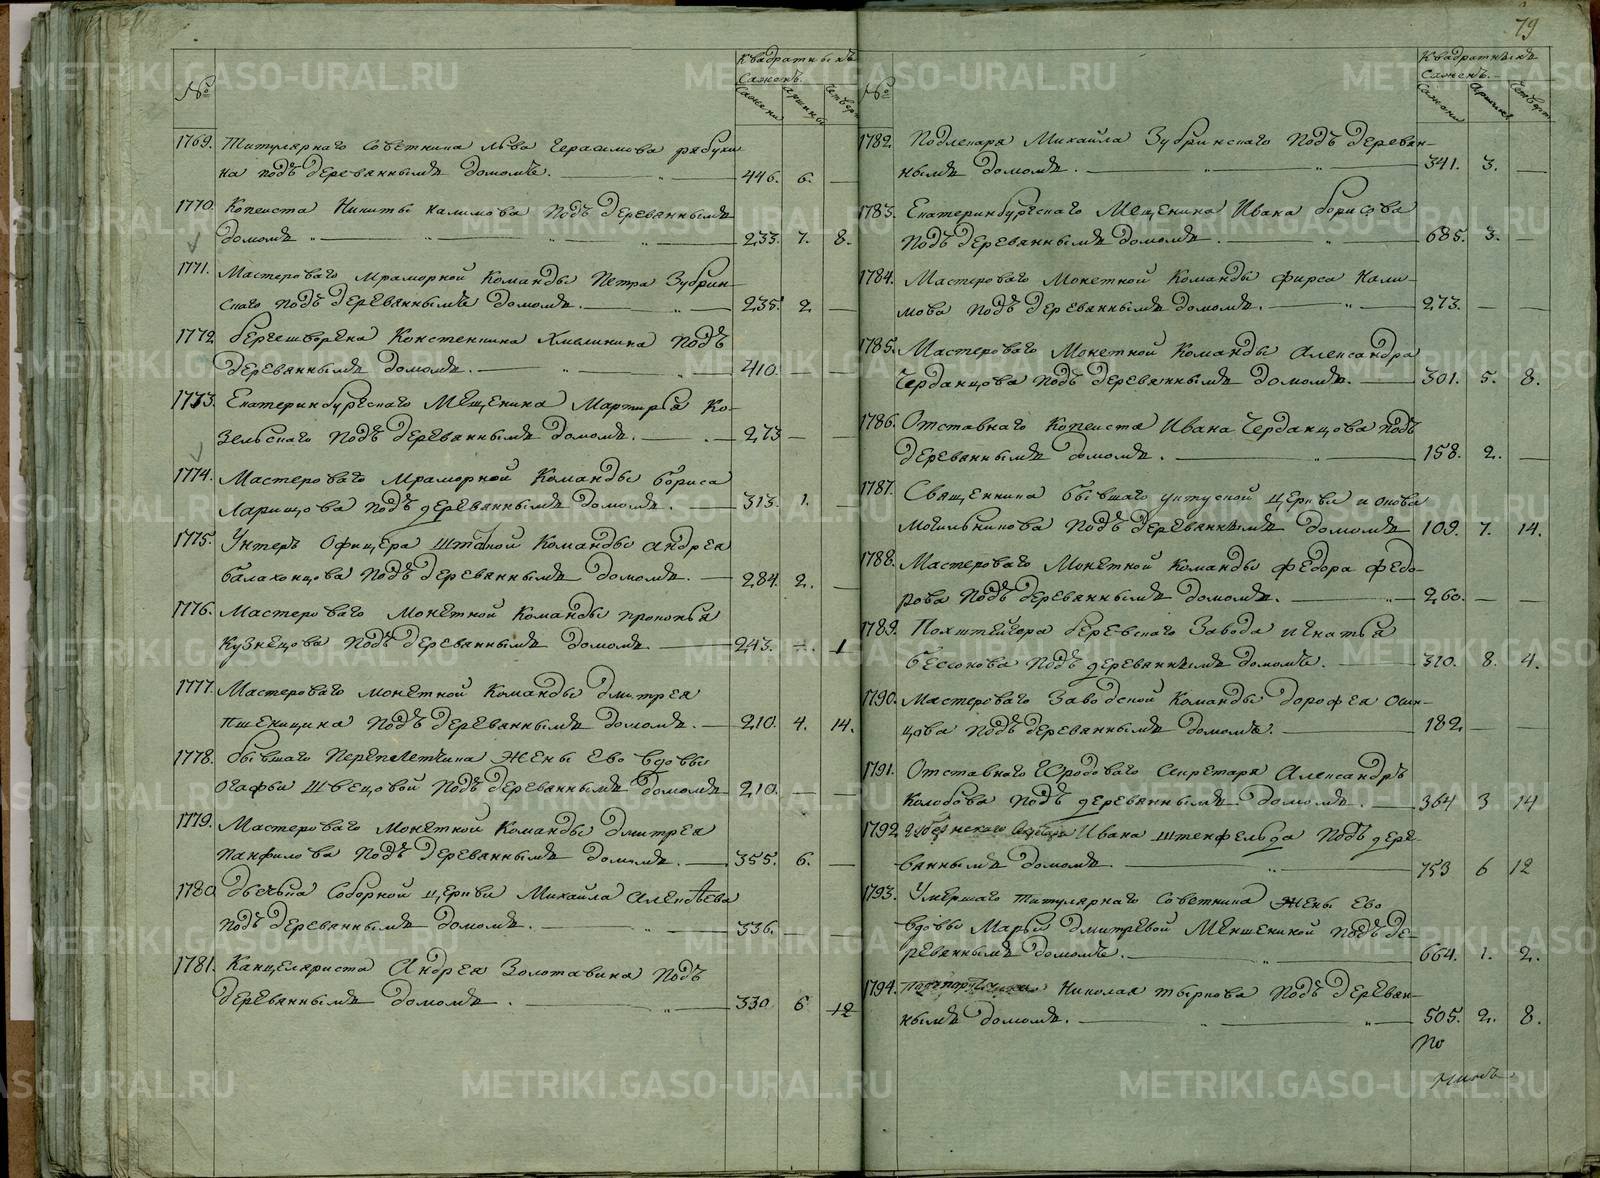 79
№
Квадратныхъ
Саженъ.
Сажени
Аршины
Четверт
1769. Титулярнаго Советника Льва Герасимова Рябухи-
на подъ деревяннымъ домомъ. 446. 6. —
1770. Кописта Никиты Калимова подъ деревяннымъ
домомъ 233. 7. 8.
1771. Мастероваго Мраморной Команды Петра Зубрин-
скаго подъ деревяннымъ домомъ. 235. 2. —
1772 Хмелинина подъ
деревяннымъ домомъ. 410. — —
1773. Екатеринбургскаго Мещенина Мартирья Ко-
зельскаго подъ деревяннымъ домомъ. 273 — —
1774. Мастероваго Мраморной Команды Бориса
Ларищова подъ деревяннымъ домомъ. 313. 1. —
1775. Унтеръ Офицера Штатной Команды Андрея
Балахонцова подъ деревяннымъ домомъ. 284. 2. —
1776. Мастероваго Монетной Команды Прокопья
Кузнецова подъ деревяннымъ домомъ. 243. — 1
1777. Мастероваго Монетной Команды Дмитрея
Пшеницина подъ деревяннымъ домомъ. 210. 4. 14.
1778. Бывшаго Переплетчика Жены Ево вдовы
Огафьи Швецовой подъ деревяннымъ домомъ 210. — —
1779. Мастероваго Монетной Команды Дмитрея
Панфилова подъ деревяннымъ домомъ. 355. 6. —
1780. Дьячка Соборной церкви Михайла Алексеева
подъ деревяннымъ домомъ. 336. — —
1781. Канцеляриста Андрея Золотавина подъ
деревяннымъ домомъ. 330 6 12
№
Квадратныхъ
Саженъ.
Сажени
Аршины
Четверт
1782. Подлекаря Михайла Зубринскаго подъ деревян-
нымъ домомъ. 341. 3. —
1783. Екатеринбургскаго Мещенина Ивана Борисова
подъ деревяннымъ домомъ. 685. 3. —
1784. Мастероваго Монетной Команды Фирса Кали-
мова подъ деревяннымъ домомъ. 273. — —
1785. Мастероваго Монетной Команды Александра
Черданцова подъ деревяннымъ домомъ. 301. 5. 8.
1786. Отставнаго Кописта Ивана Черданцова подъ
деревяннымъ домомъ. 158. 2. —
1787. Священника бывшаго Уктуской церкви
Могильникова подъ деревяннымъ домомъ 109. 7. 14.
1788. Мастероваго Монетной Команды Федора Федо-
рова подъ деревяннымъ домомъ. 260. — —
1789. Похштейгора Березскаго Завода Игнатья
Бесонова подъ деревяннымъ домомъ. 310. 8. 4.
1790. Мастероваго Заводской Команды Дорофея Осин-
цова подъ деревяннымъ домомъ. 182. — —
1791. Отставнаго Городоваго Секретаря Александръ
Колобова подъ деревяннымъ домомъ. 364 3 14
1792. Ивана Штенфельда подъ дере-
вяннымъ домомъ 753 6 12
1793. Умершаго Титулярнаго Советника Жены Ево
вдовы Марьи Дмитревой Меншениной подъ де-
ревяннымъ домомъ. 664. 1. 2.
1794. Николая Тырнова подъ деревян-
нымъ домомъ. 505. 2. 8.
По
METRIKI.GASO-URAL.RU